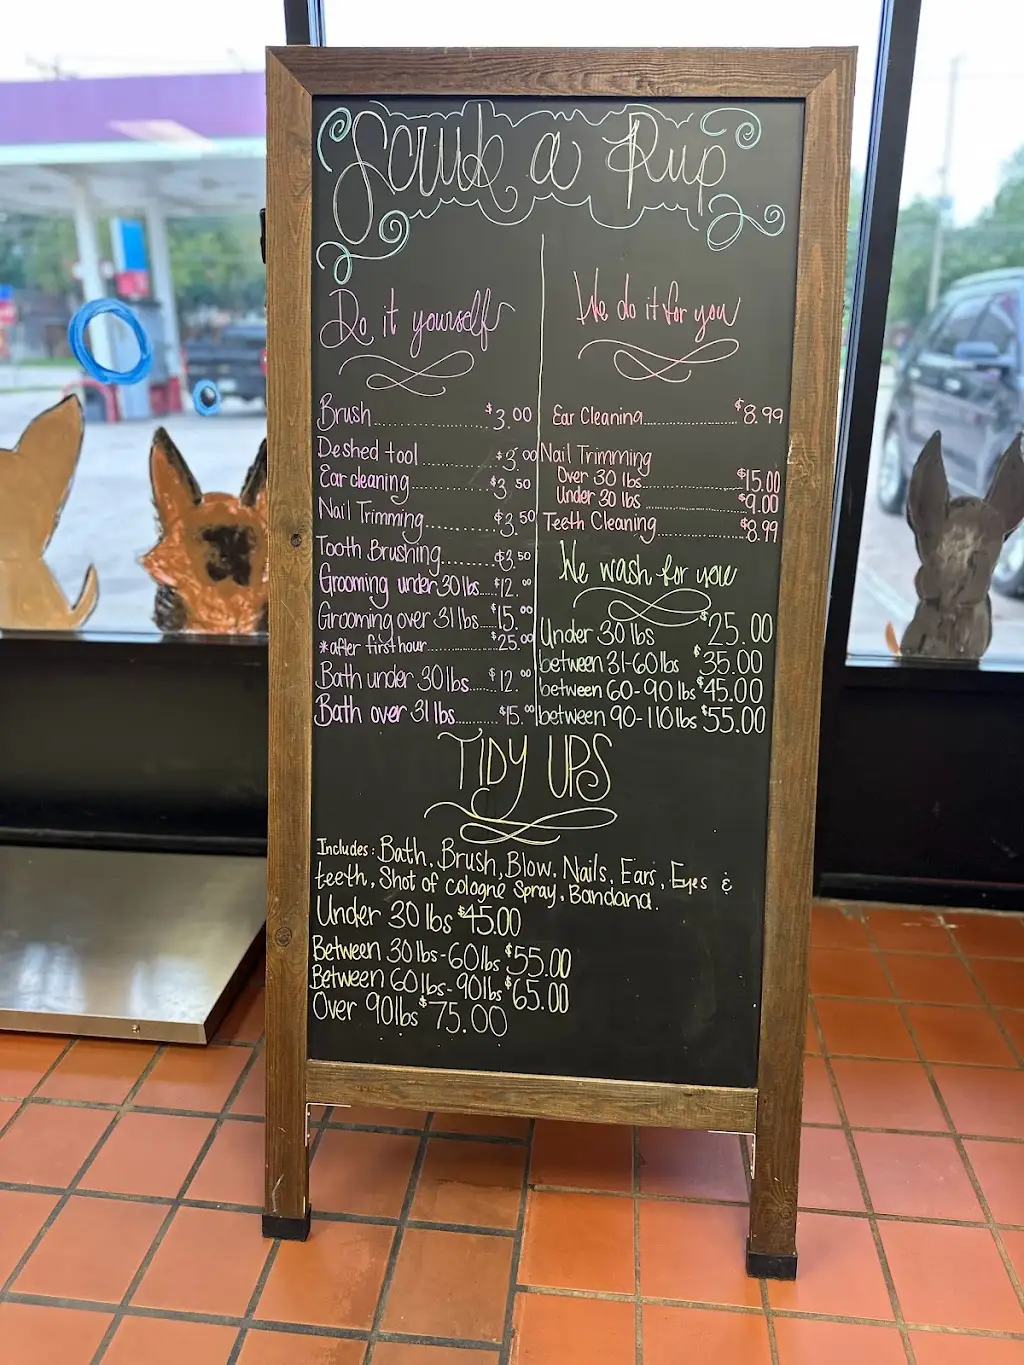 Scrub a Pup
Do it yourself
Brush $3.00
Deshed tool $3.00
Ear cleaning $3.50
Nail Trimming $3.50
Tooth Brushing $3.50
Grooming under 30lbs $12.00
Grooming over 31 lbs $15.00
*after first hour $25.00
Bath under 30lbs $12.00
Bath over 31 lbs $15.00
We do it for you
Ear Cleaning $8.99
Nail Trimming
Over 30 lbs $15.00
Under 30 lbs $9.00
Teeth Cleaning $8.99
We wash for you
Under 30 lbs $25.00
between 31-60lbs $35.00
between 60-90 lbs $45.00
between 90-110 lbs $55.00
TIDY UPS
Includes: Bath, Brush, Blow, Nails, Ears, Eyes &
teeth, Shot of cologne spray, Bandana.
Under 30 lbs $45.00
Between 30 lbs-60lbs $55.00
Between 60lbs-90lbs $65.00
Over 90lbs $75.00